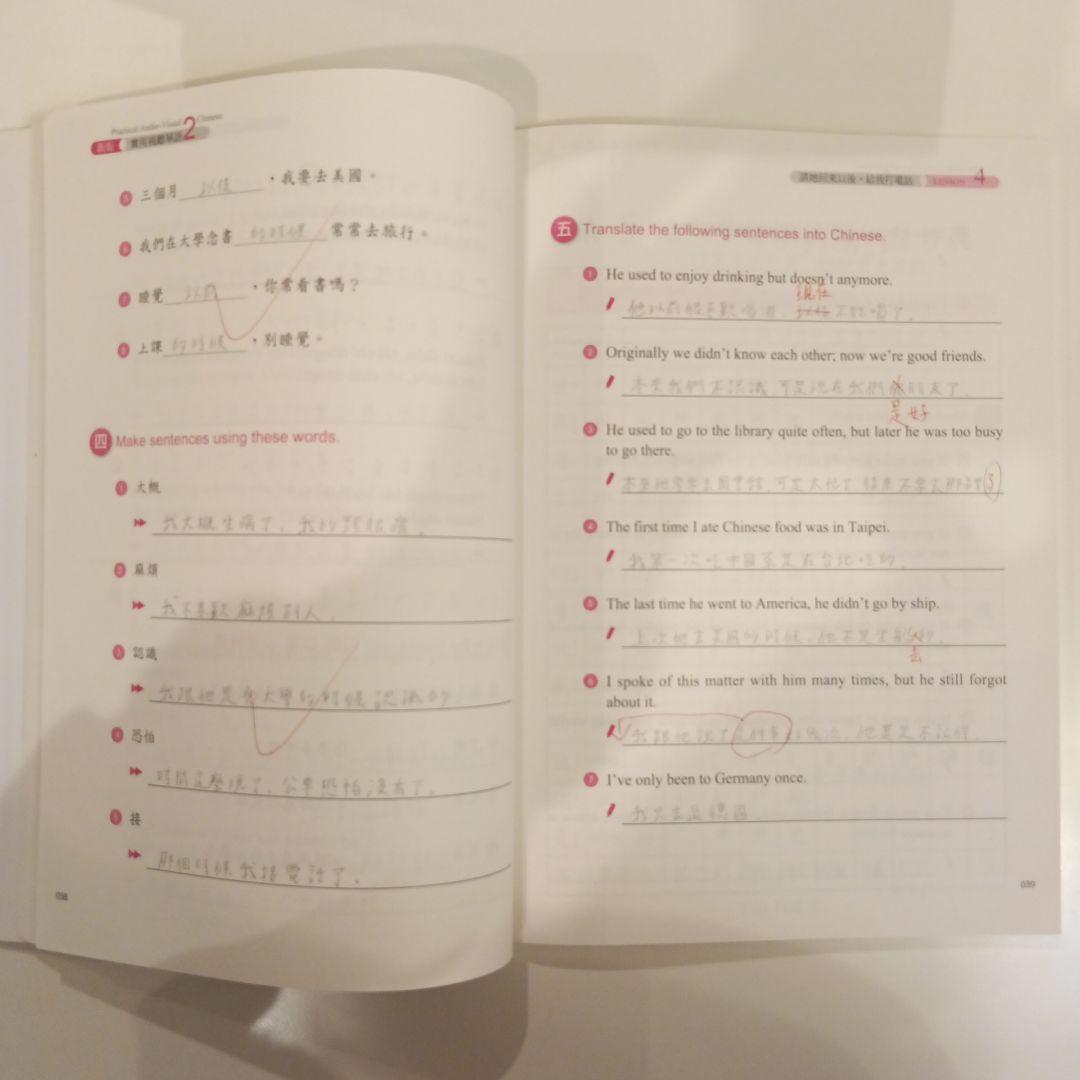 Practical Audio-Visual Chinese 2
新版 實用視聽華語
5 三個月 以後 ，我要去美國。
6 我們在大學念書 的時候 常常去旅行。
7 睡覺 以前 ，你常看書嗎？
8 上課 的時候 ，別睡覺。
四 Make sentences using these words.
1 大概
我大概生病了，我的頭很痛。
2 麻煩
我不喜歡麻煩別人。
3 認識
我跟他是我大學的時候認識的。
4 恐怕
時間這麼晚了，公車恐怕沒有了。
5 接
那個時候我接電話了。
038
請她回來以後，給我打電話 LESSON 4
五 Translate the following sentences into Chinese.
1 He used to enjoy drinking but doesn't anymore.
現在
他以前很喜歡喝酒，以後不喝了。
2 Originally we didn't know each other; now we're good friends.
本來我們不認識，可是現在我們朋友了。
是好
3 He used to go to the library quite often, but later he was too busy
to go there.
本來他常常去圖書館，可是太忙了後來不常去那裡了
4 The first time I ate Chinese food was in Taipei.
我第一次吃中國菜是在台北吃的。
5 The last time he went to America, he didn't go by ship.
上次他去美國的時候，他不是坐船的。
去
6 I spoke of this matter with him many times, but he still forgot
about it.
我跟他說了這件事幾次，他還是不記得。
7 I've only been to Germany once.
我只去過德國。
039